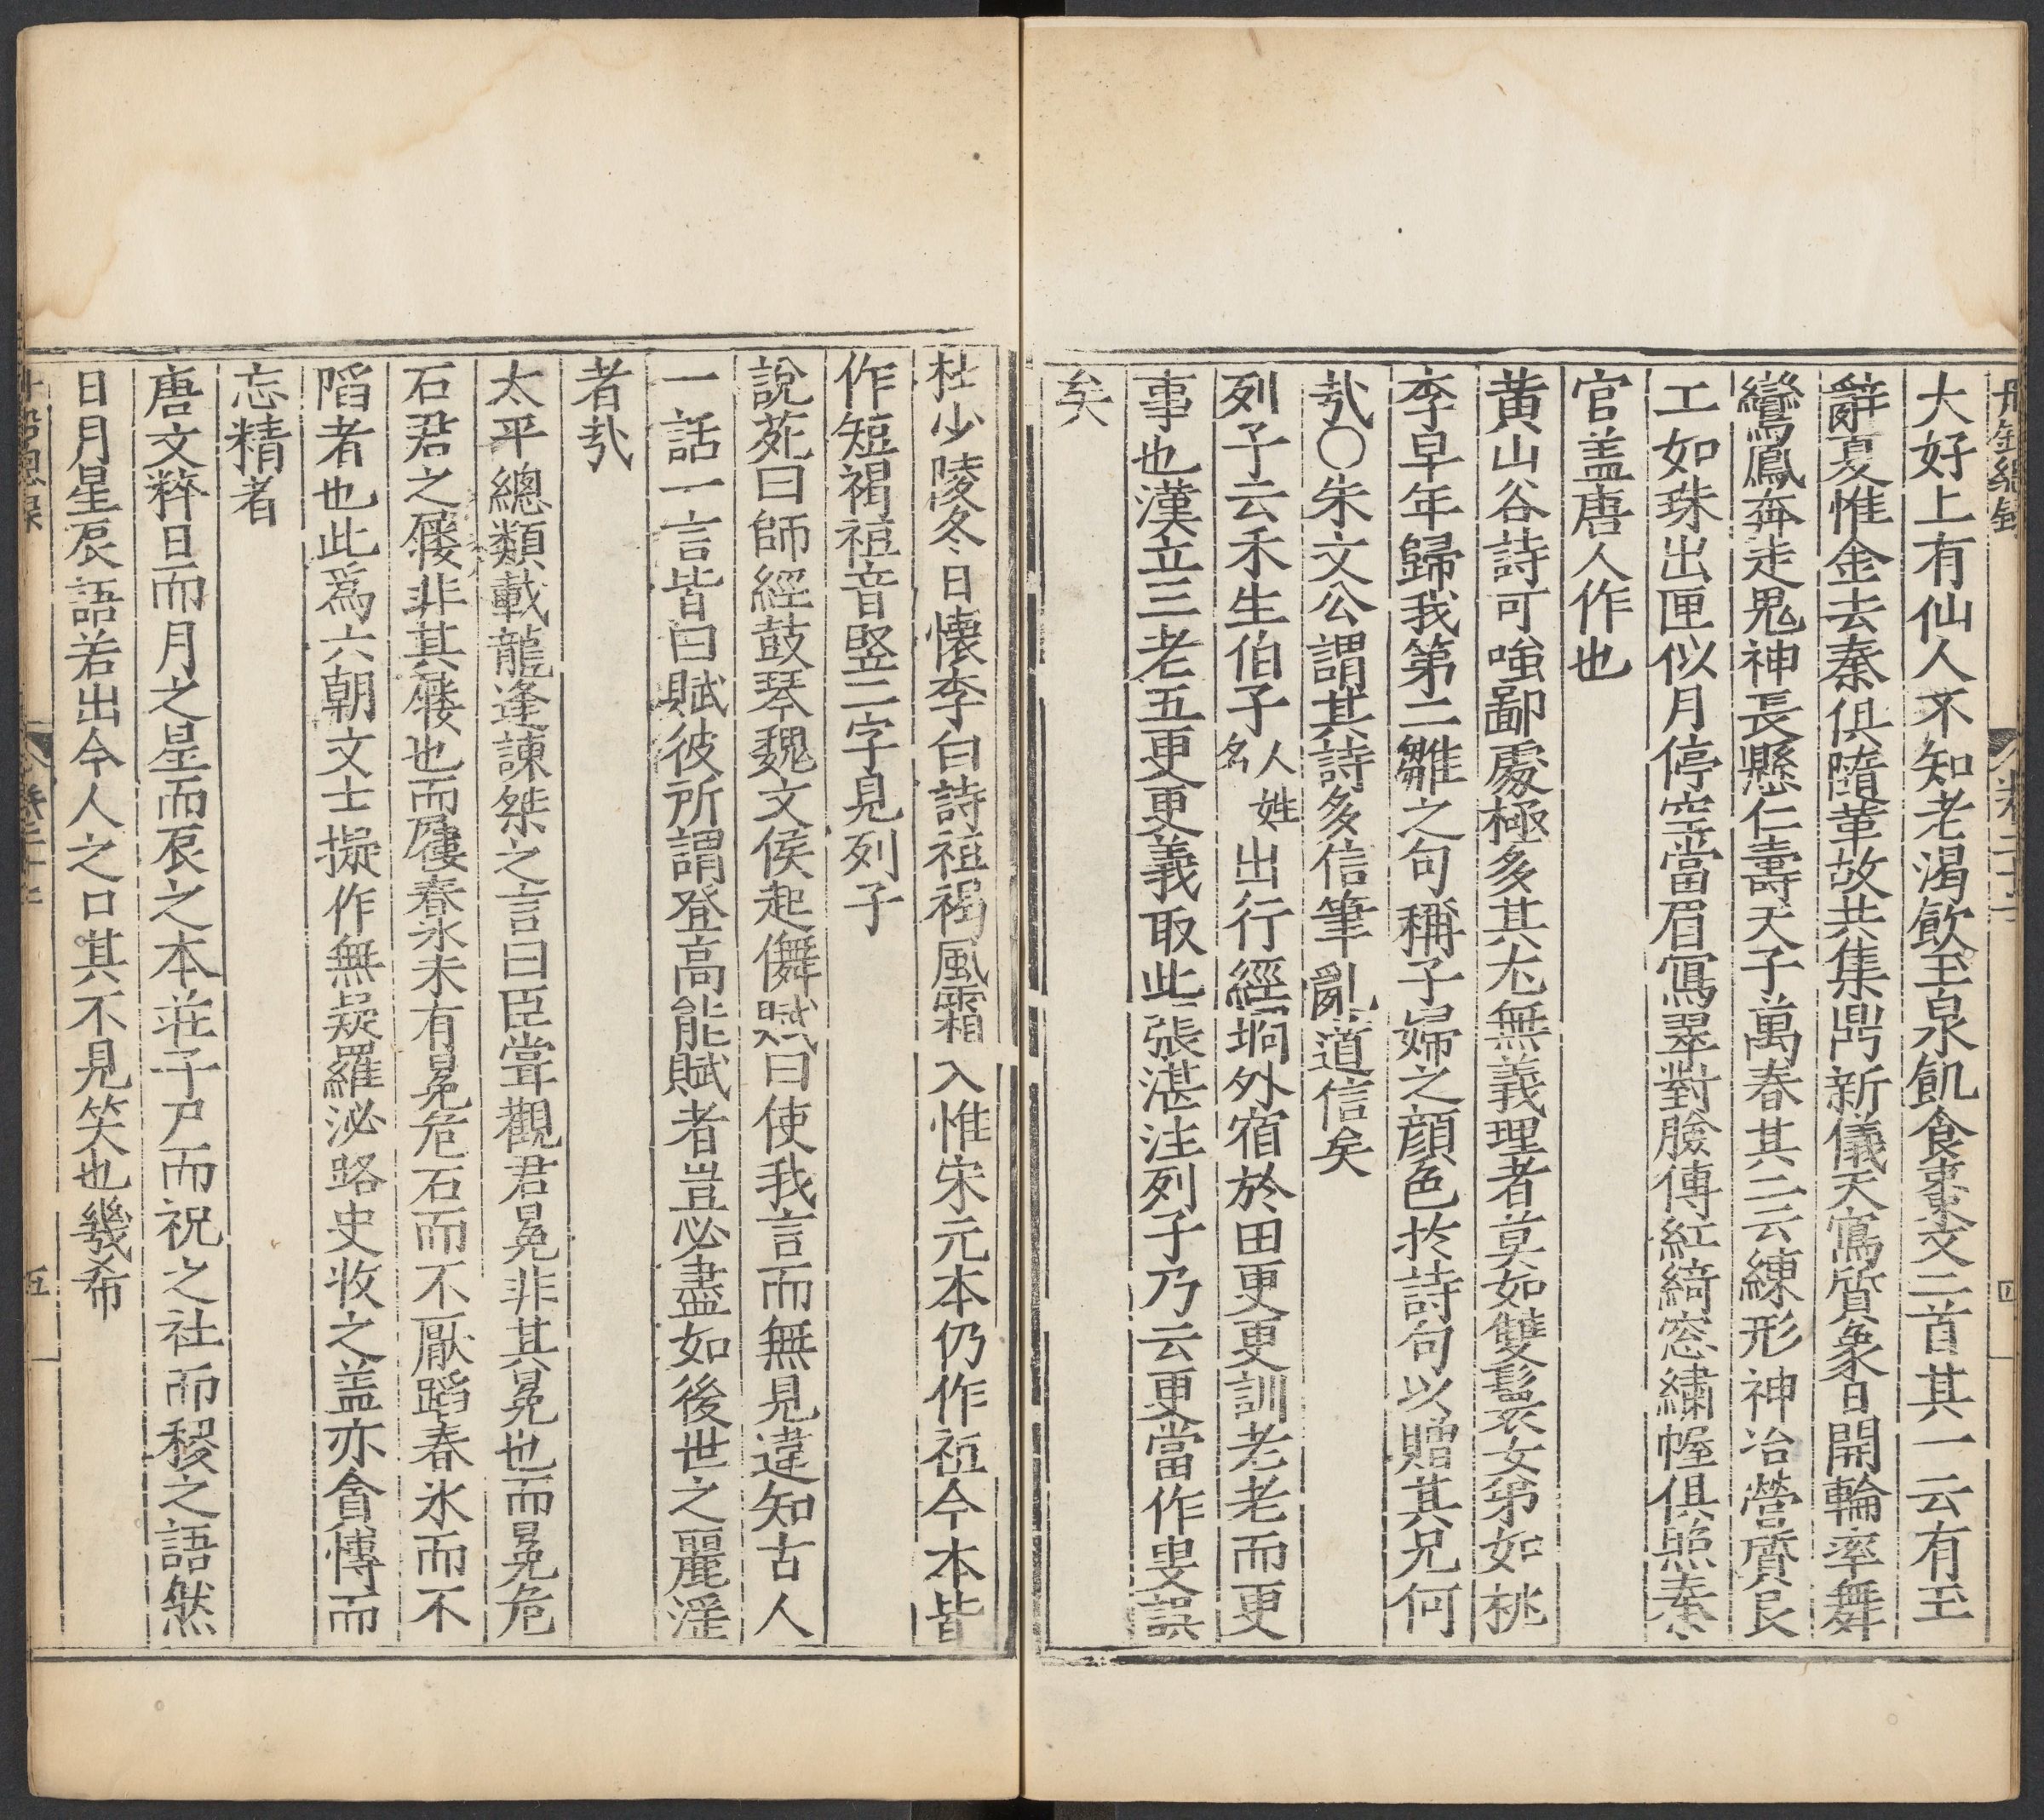 丹鉛總錄 卷二十 四
大好上有仙人不知老渴飲玉泉飢食棗文三首其一云有玉
辭夏惟金去秦俱隨革故共集鼎新儀天寫質象日開輪率舞
鸞鳳奔走鬼神長懸仁壽天子萬春其二云練形神冶瑩質良
工如珠出匣似月停空當眉寫翠對臉傳紅綺窓繡幄俱照秦
官盖唐人作也
黃山谷詩可嗤鄙處極多其尤無義理者莫如雙鬟女弟如桃
李早年歸我第二雛之句稱子婦之顔色扵詩句以贈其兄何
㢤〇朱文公謂其詩多信筆亂道信矣
列子云禾生伯子人姓名出行經坰外宿於田更更訓老老而更
事也漢立三老五更更義取此張湛注列子乃云更當作叟誤
矣
杜少陵冬日懷李白詩裋褐風霜入惟宋元本仍作裋今本皆
作短褐裋音竪二字見列子
說苑曰師經鼓琴魏文侯起儛賦曰使我言而無見違知古人
一話一言皆曰賦彼所謂登高能賦者豈必盡如後世之麗淫
者㢤
太平總類載龍逢諫桀之言曰臣甞觀君冕非其冕也而冕危
石君之屨非其屨也而屨春氷未有冕危石而不厭蹈春氷而不
䧟者也此爲六朝文士擬作無疑羅泌路史收之盖亦貪愽而
忘精者
唐文粹日而月之星而辰之本莊子尸而祝之社而稷之語然
日月星辰語若出今人之口其不見笑也幾希
五